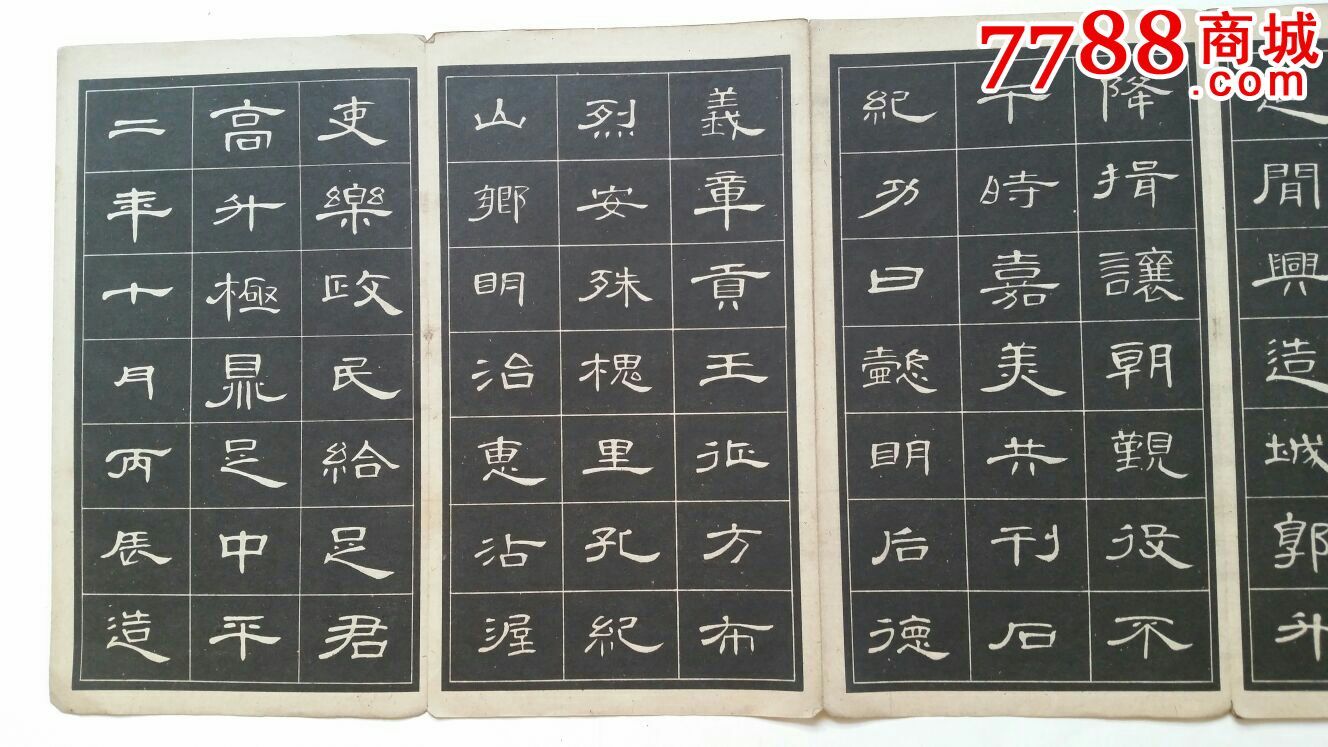 7788商城
.com
間興造城郭升
降揖讓朝覲役不
干時嘉羙共刊石
紀功曰懿明后德
義章貢王征方布
烈安殊槐里孔紀
山鄉明治恵沾渥
吏樂政民給足君
高升極鼎足中平
二年十月丙辰造